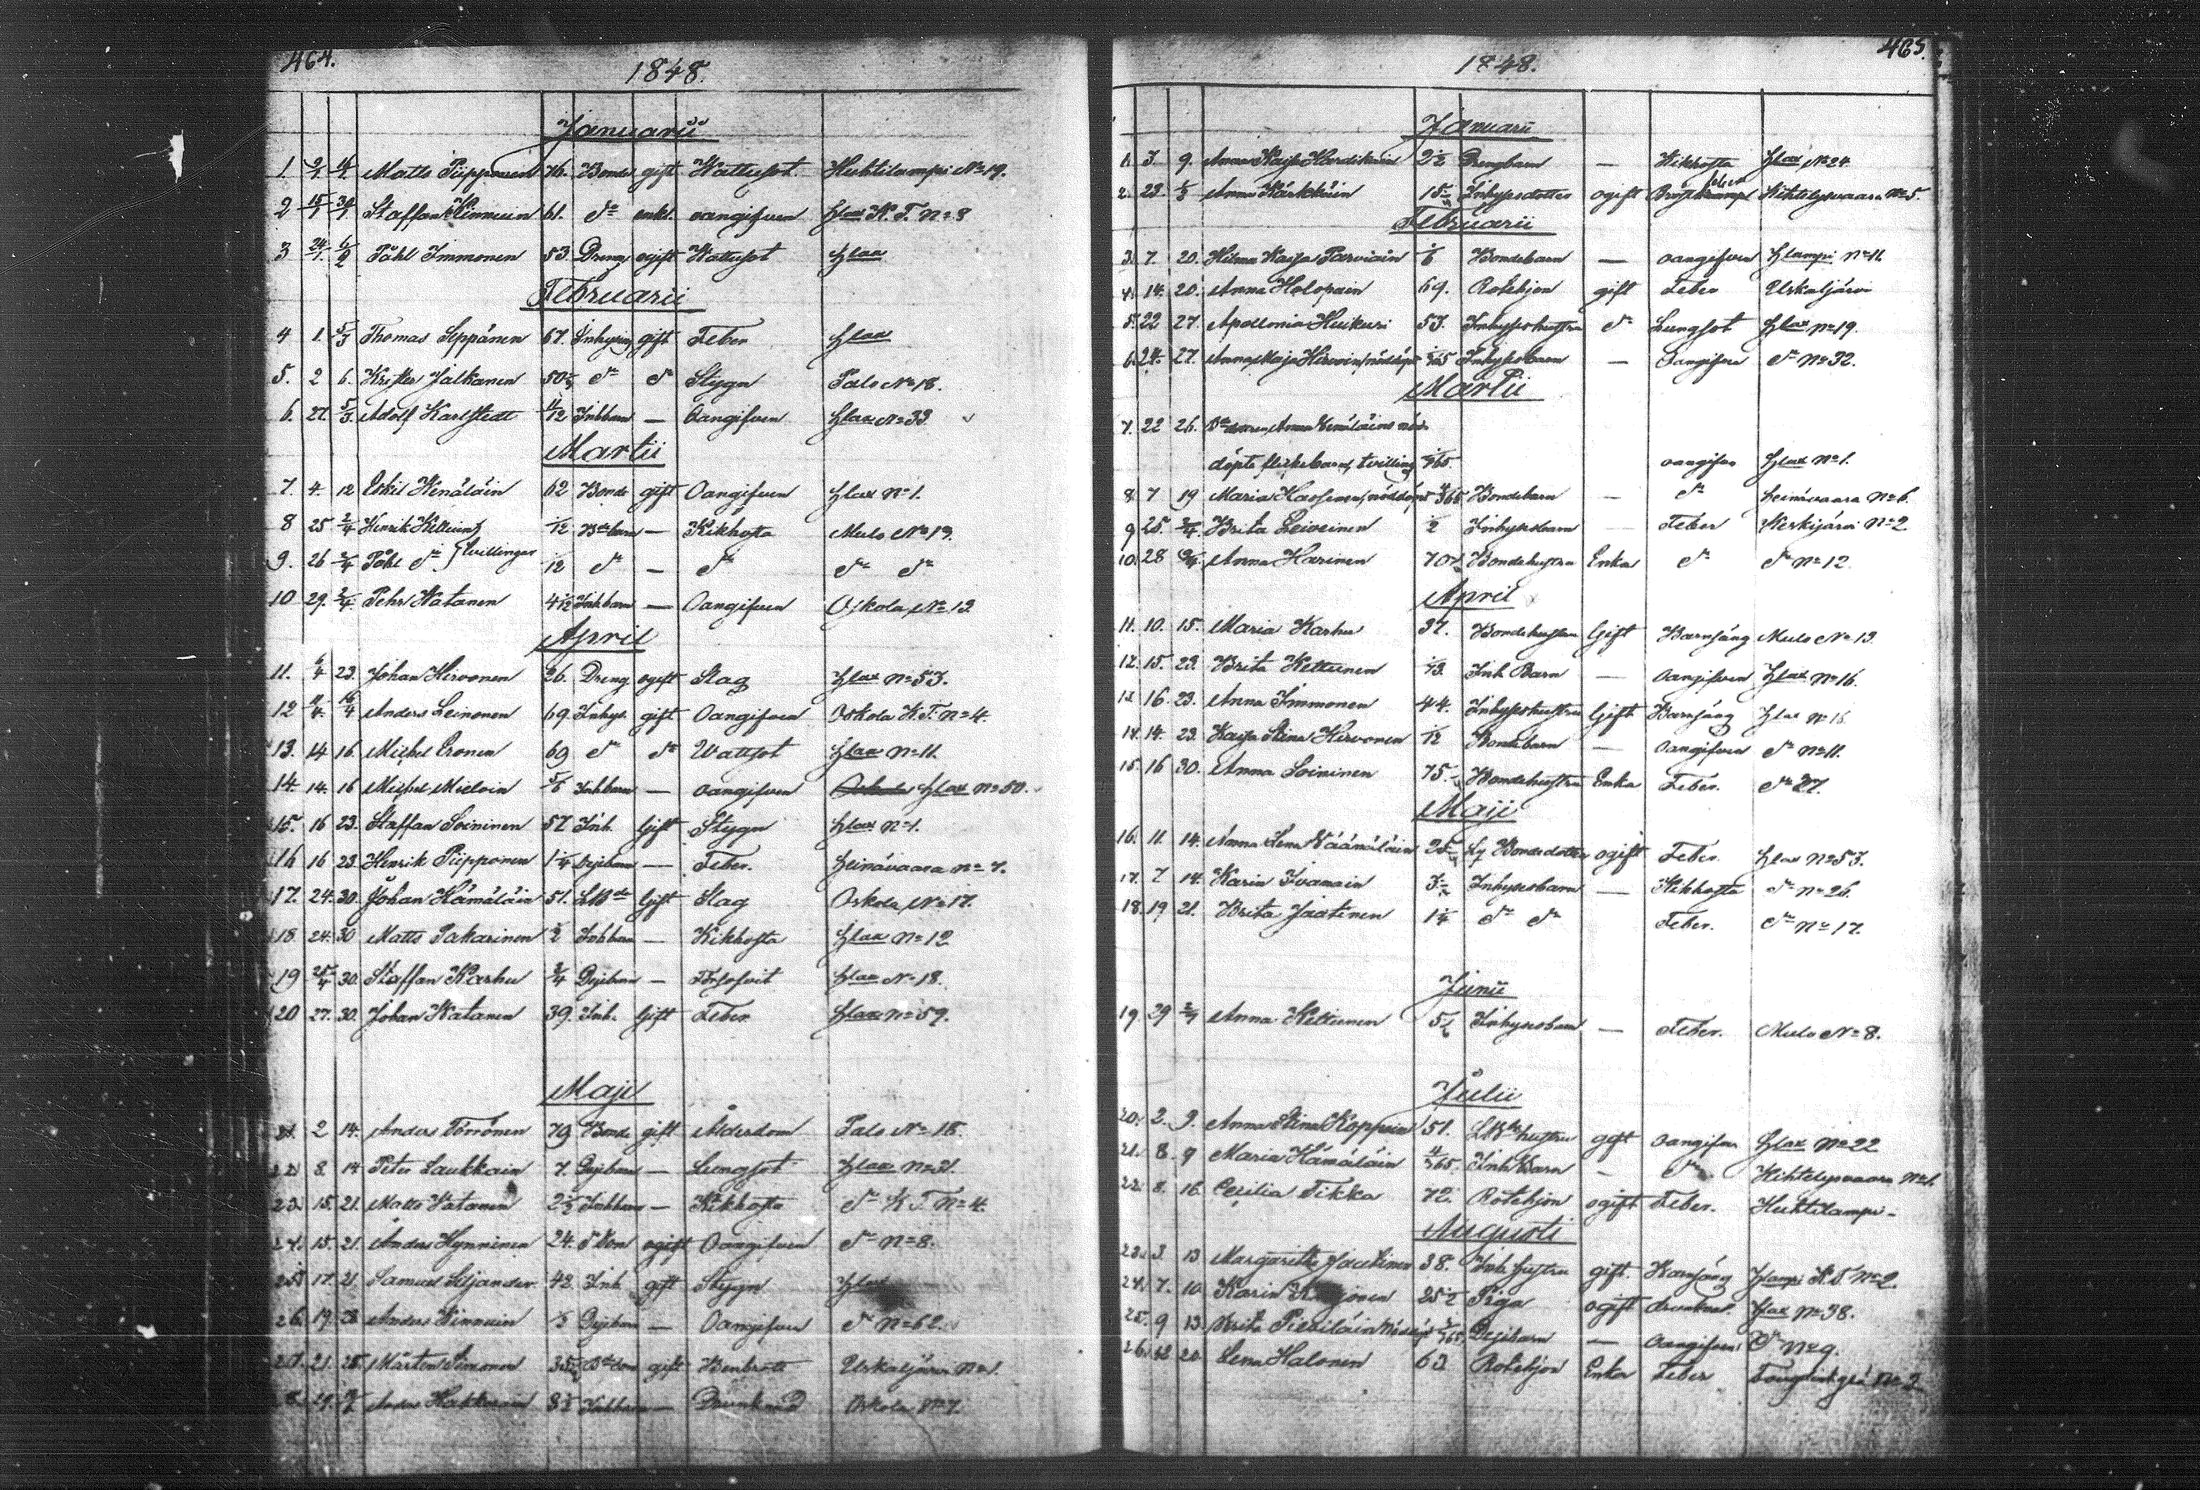 464.
1848.
Januarii
1. 2/1 16/1 Matts Piipponen 76. Bonde gift Wattusot Huhtilampi No 19.
2 15/1 30/1 Staffan Kinnuin 61. do enkl. oangifven Hlax K. T. No 8
3 24/1 6/2 Påhl Immonen 53. Dreng ogift Wattusot Hlax
Februarii
4 1. 5/3 Thomas Seppänen 67. Inhysing gift Feber Hlax
5. 2 6. Krister Jalkanen 50 do do Stygn Palo No 18.
6. 27. 5/3 Adolf Karlstedt 11/12 Inhbarn — Oangifven Hlax No 33
Martii
7. 4. 12 Eskil Venäläin 62 Bonde gift Oangifven Hlax No 1.
8 25 2/4 Henrik Kettuin 1/12 Bdebarn — Kikhosta Mulo No 19.
9. 26 2/4 Påhl do Tvillingar 1/12 do — do do do
10 29. 2/4. Pehr Watanen 4 1/12 Inhbarn — Oangifven Oskola No 12
April
11. 6/4 23. Johan Hirvonen 26. Dreng ogift Slag Hlax No 53.
12 11/4. 16/4 Anders Leinonen 69. Inhys. gift Oangifven Oskola K. T. No 4.
13. 14 16. Michel Eronen 69 do do Wattsot Hlax No 11.
14. 14. 16 Michel Mieloin 5/6 Inhbarn — oangifven Hlax No 50.
15. 16 23. Staffan Soininen 57 Inh. Gift Stygn Hlax No 1.
16 16 23. Henrik Piipponen 1 1/4 Dejebarn — Feber. Heinävaara No 7.
17. 24. 30. Johan Hämäläin 51. LBde Gift Slag Oskola No 17.
18 24. 30 Matts Pakarinen 1/2 Inhbarn — Kikhosta Hlax No 12
19 25/4 30. Staffan Karhu 3/4 Dejebarn — Hlax No 18.
20 27. 30. Johan Watanen 39. Inh. Gift Feber Hlax No 59.
Maji
21. 2 14. Anders Törrönen 79 Bonde gift Ålderdom Palo No 18.
22. 8. 14 Peter Laukkain 7. Dejebarn — Lungsot Hlax No 31.
23. 15. 21. Matts Vatanen 2 Inhbarn — Kikhosta do K. T. No 4.
24. 15. 21. Anders Hynninen 24. ogift Oangifven do No 8.
25. 17. 21. Samuel Siljander. 42. Inh. gift Stygn Hlax
26. 19. 28 Anders Kinnuin Dejebarn — Oangifven do No 62.
27. 21. 28. Mårten Simonen gift Benbrott Uskaljärvi No 1.
28. 29. Anders Hakkarain Inhbarn — Drunknad Oskola No 7.
465.
1848.
Januarii
1. 3. 9. Anna Kaisa Drengbarn — Kikhosta Hlax, No 24.
2. 23. Anna Kärkkäin 15. Inhysesdotter ogift Kihtelysvaara No 5.
Februarii
3. 7. 20. Helena Kaisa Parviain 1/6 Bondebarn — oangifven Hlampi No 11.
4. 14. 20. Anna Holopain 69. Rotehjon gift Feber Uskaljärvi
5. 22 27. Apollonia Huikuri 53. Inhyseshustru do Lungsot Hlax No 19.
6. 24. 27. Anna Maja Hirvoin, nöddöpt /365 Inhysesbarn — Oangifven do No 32.
Martii
7. 22 26. Anna Venäläins nöd-
döpte flickebarn, tvilling /365. oangifven Hlax No 1.
8. 7 19 Maria nöddöpt /365 Bondebarn — do Heinävaara No 6.
9 25. 2/4. Brita Leivinen 1/2 Inhysesbarn — Feber Kerkijärvi No 2
10. 28 Anna Harinen 70 Bondehustru Enka do do No 12.
April
11. 10. 15. Maria Karhu 37. Bondehustru Gift Barnsäng Mulo No 13.
12. 15. 23. Brita Kettunen Inh Barn — Oangifven Hlax No 16.
13. 16 23. Anna Immonen 44. Inhyseshustru Gift Barnsäng Hlax No 16.
14. 14. 23. Kaisa Stina Hirvonen 1/12 Bondebarn — Oangifven do No 11.
15. 16 30. Anna Soininen 75. Bondehustru Enka Feber. do 27.
Maji
16. 11. 14. Anna Lena Väänäläin 25 Bondedotter ogift Feber. Hlax No 53.
17. 7 14. Karin Ivanain 3 Inhysesbarn — Kikhosta do No 26.
18. 19 21. Brita Jaatinen 1 1/4 do do Feber. do No 17.
Junii
19 29 2/7 Anna Kettunen 5 Inhysesbarn — Feber. Mulo No 8.
Julii
20. 2. 9. Anna Stina Koppoin 51. LBde hustru gift oangifven Hlax No 22
21. 8. 9 Maria Hämäläin /365. Inh Barn — do Kihtelysvaara No 1.
22. 8. 16. Cecilia Tikka 72. Rotehjon ogift Feber. Huhtilampi
Augusti
23. 3. 13 Margaretha Jaatinen 38. Inh hustru gift. Barnsäng Hlampi K. T. No 2.
24. 7. 10 Karin 25 1/2 Piga ogift Hlax No 38.
25. 9 13. Brita /365 Dejebarn — Oangifven do No 9.
26. 12 20. Lena Halonen 63 Rotehjon Enka Feber No 2